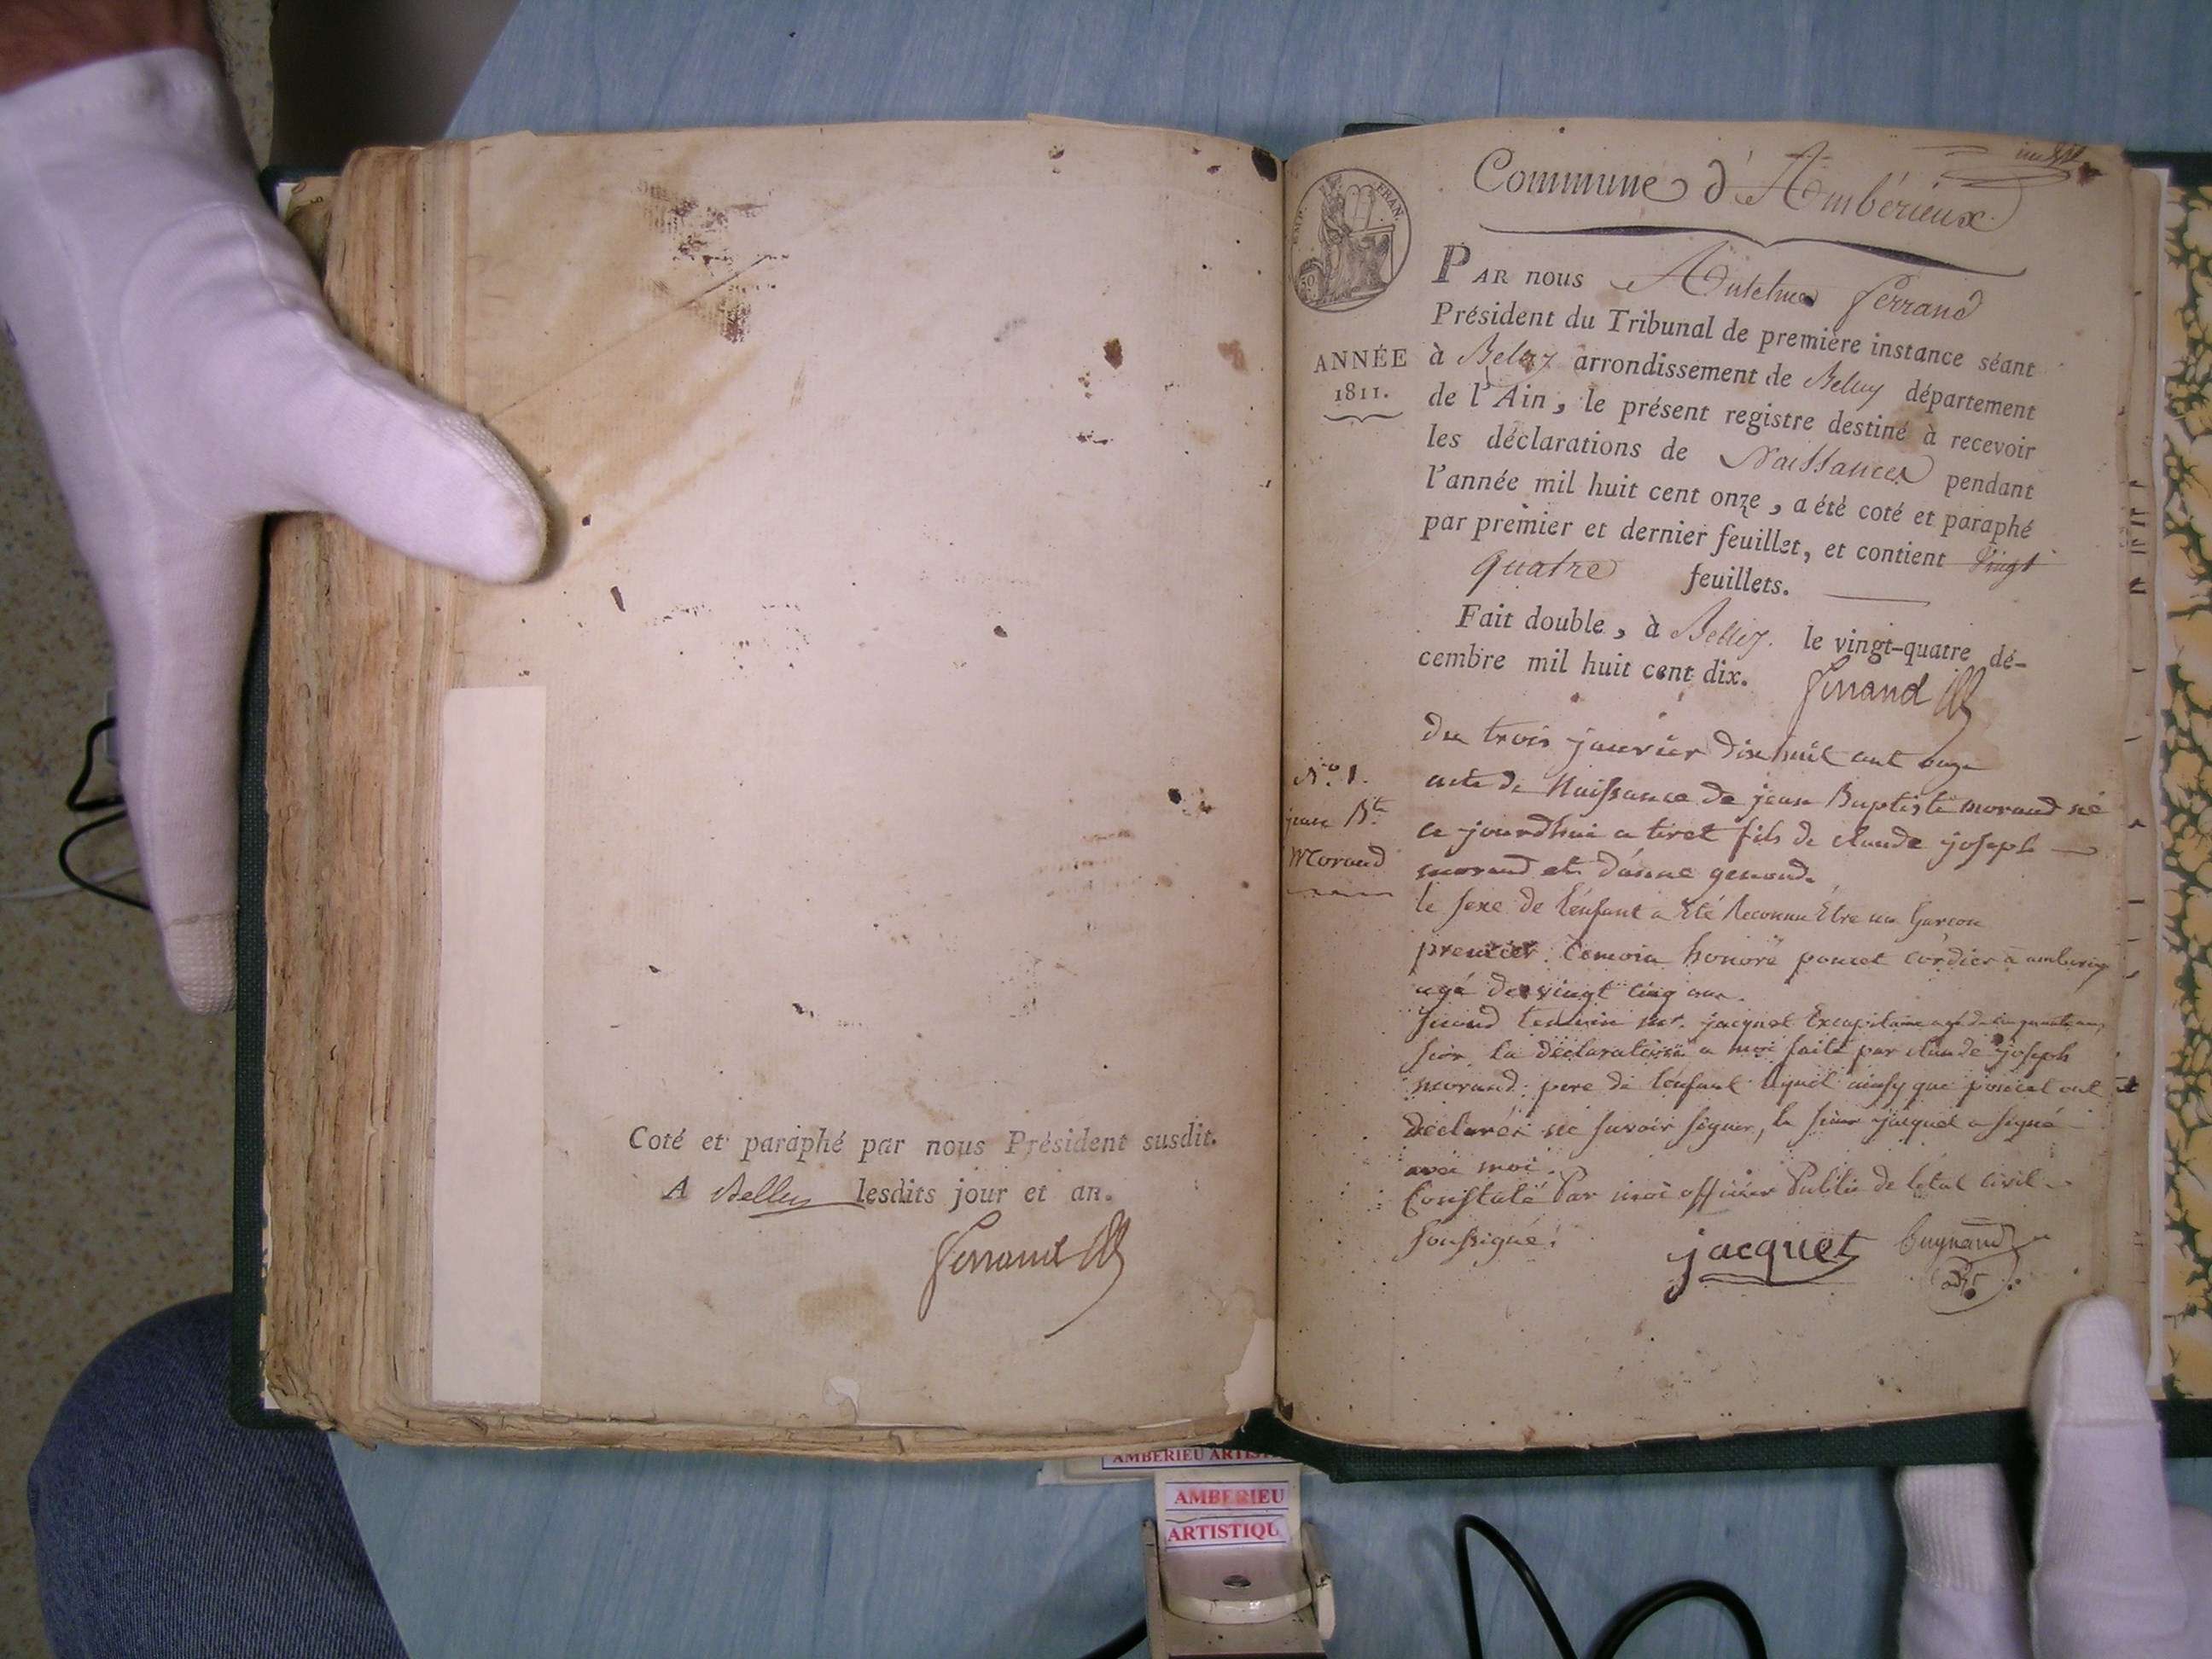 Coté et paraphé par nous Président susdit.
A Belley lesdits jour et an.
Ferrand
Commune d'Ambérieux
EMP. FRAN.
50
ANNÉE
1811.
PAR nous Antelme ferrand
Président du Tribunal de première instance séant
à Belley arrondissement de Belley département
de l'Ain, le présent registre destiné à recevoir
les déclarations de Naissances pendant
l'année mil huit cent onze, a été coté et paraphé
par premier et dernier feuillet, et contient Vingt
quatre feuillets.
Fait double, à Belley. le vingt-quatre dé-
cembre mil huit cent dix. Ferrand
du trois janvier dix huit cent onze
N.o 1.
jean Bte
Morand
acte de Naissance de jean Baptiste morand né
ce jourdhui a tiret fils de claude joseph
morand et d'anne genoud.
le sexe de l'enfant a Eté Reconnu Etre un Garcon
premier temoin honoré poncet cordier a
agé de vingt cinq ans.
second temoin mr. jacquet Excapitaine agé de cinquante ans
sur la déclaration a moi faite par claude joseph
morand pere de l'enfant lequel ainsy que poncet ont
déclarés ne savoir signer, le sieur jacquet a signé
avec moi.
Constaté Par moi officier Public de l'état civil
soussigné.
jacquet
AMBERIEU
AMBERIEU
ARTISTIQU